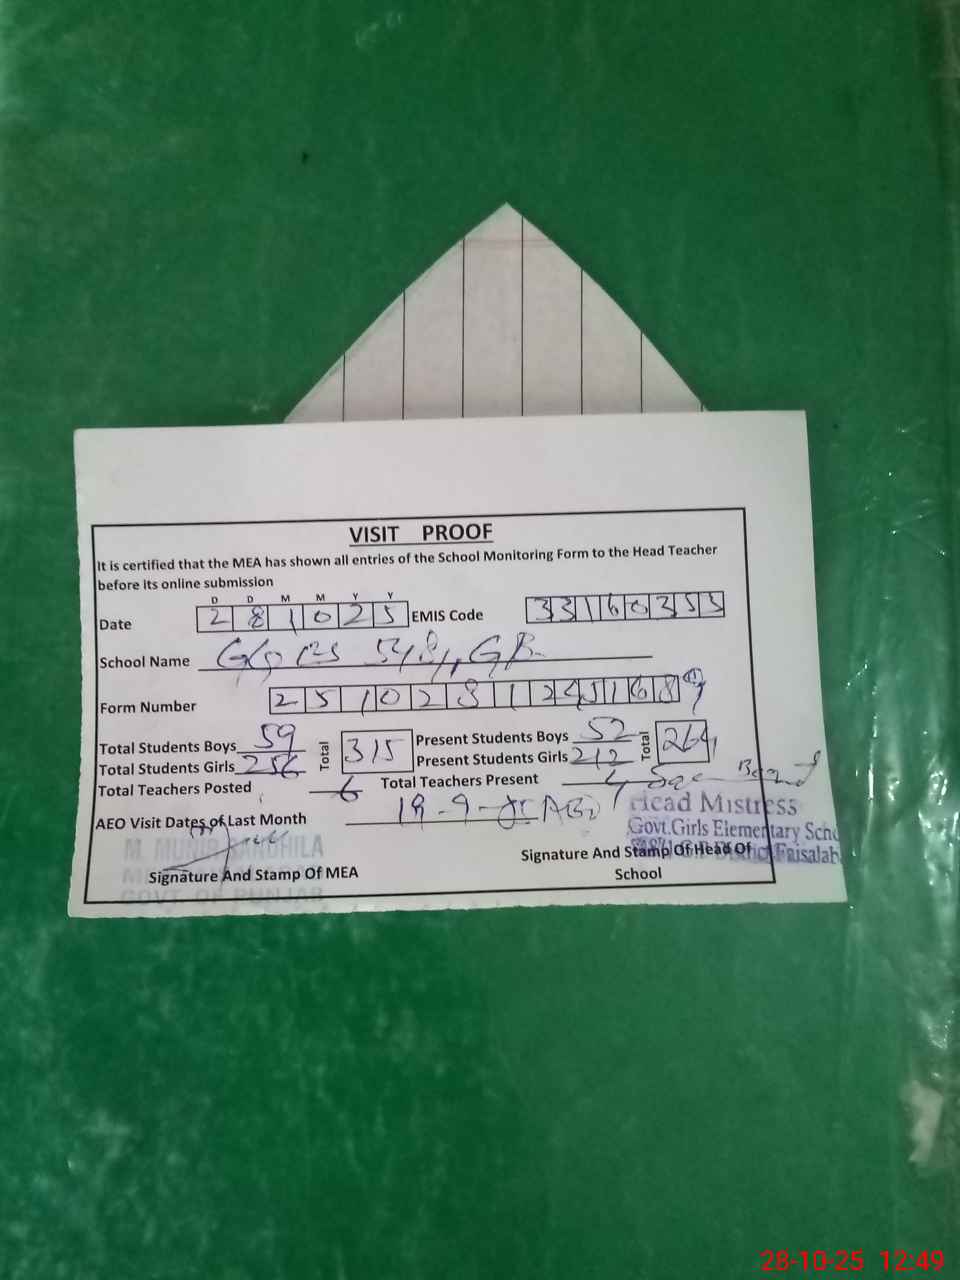 VISIT PROOF
It is certified that the MEA has shown all entries of the School Monitoring Form to the Head Teacher
before its online submission
D D M M Y Y
Date 2 8 1 0 2 5 EMIS Code 3 3 1 6 0 3 5 5
School Name GGES GB
Form Number 2 5 1 0 2 8 1 2 4 5 1 6 8
Total Students Boys 59 Total 315 Present Students Boys 52 Total 264
Total Students Girls 256 Present Students Girls 212
Total Teachers Posted 6 Total Teachers Present 4
AEO Visit Dates of Last Month
Head Mistress
Govt.Girls Elementary Scho
Faisalab
M. MUNIR
GOVT. OF PUNJAB
Signature And Stamp Of MEA
Signature And Stamp Of Head Of
School
28-10-25 12:49